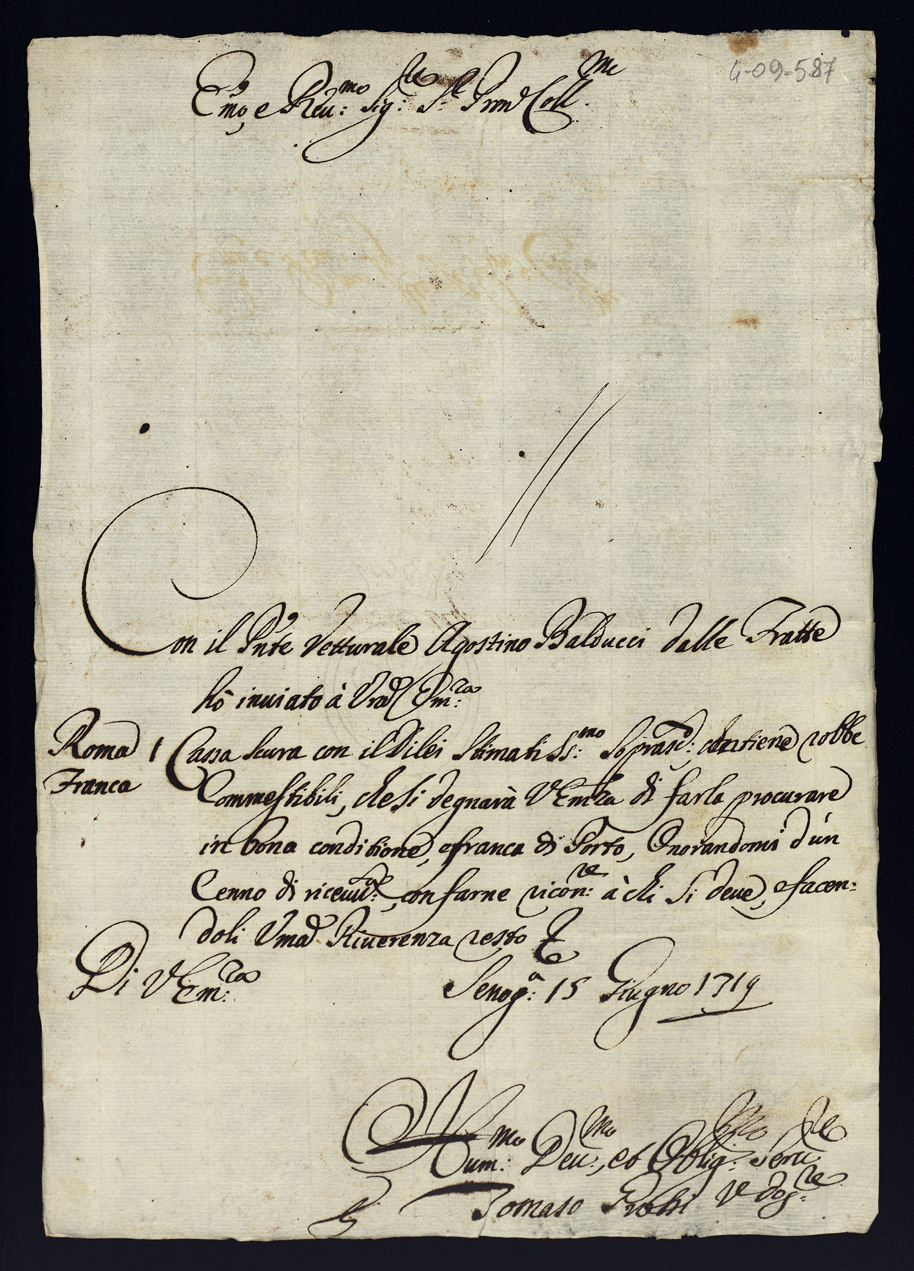 4-09-587
Emo, e Reu:mo Sig:re S:re Prone Coll:mo
Con il Pnte Vetturale Agostino Balducci dalle Fratte
hò inuiato à Vra Em:za
Roma 1 Cassa scura con il di lei Stimatiss:mo Soprasc: contiene robbe
Franca Commestibili, che si degnarà V Emza di farla procurare
in bona conditione, e franca di Porto, Onorandomi d'un
Cenno di riceuut:, con farne ricon:re à chi si deue, e facen:
doli Uma Riuerenza resto
Di V Em:za Senog:a 15 Giugno 1719
Hum:mo Deu:mo, et Oblig:mo Seru:re
Tomaso